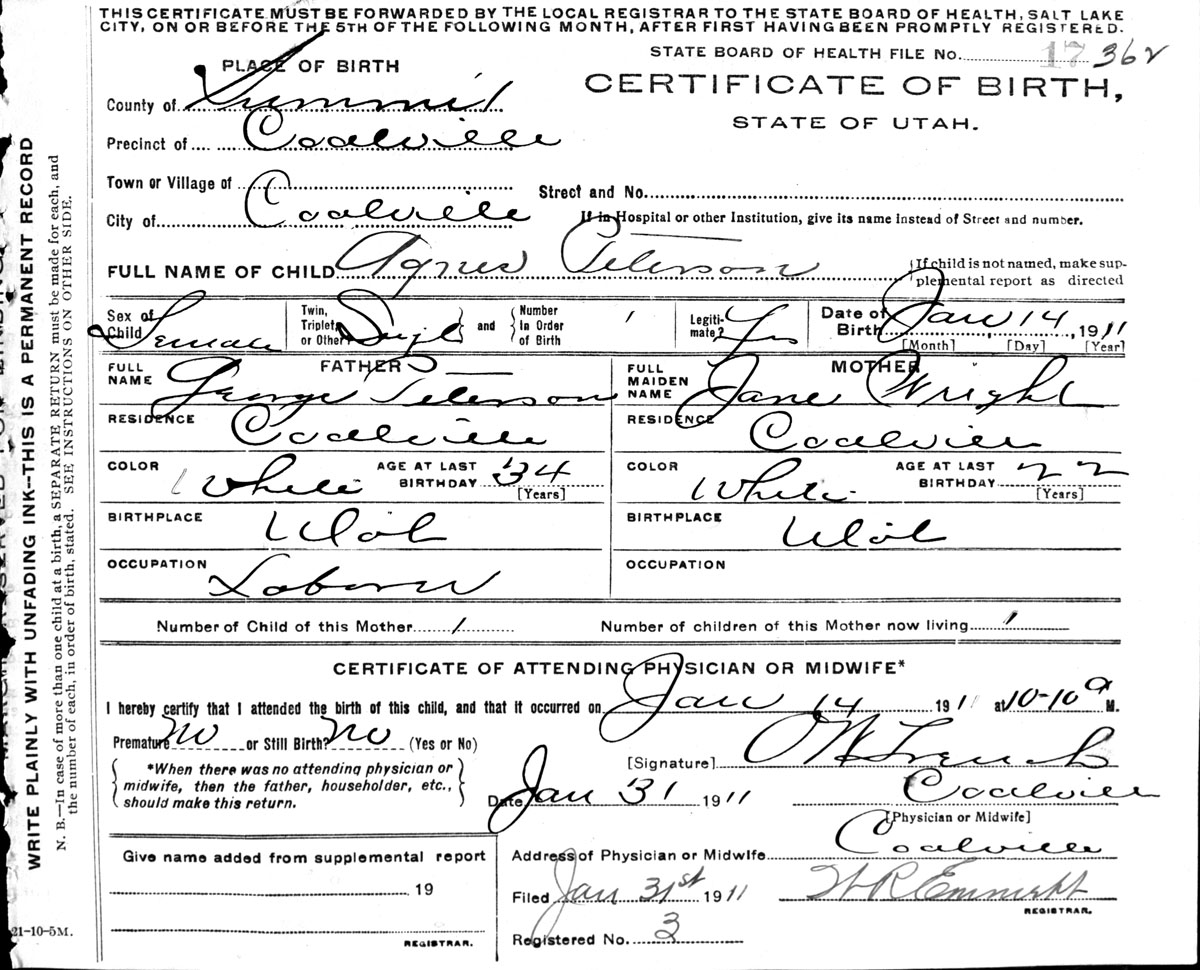 THIS CERTIFICATE MUST BE FORWARDED BY THE LOCAL REGISTRAR TO THE STATE BOARD OF HEALTH, SALT LAKE
CITY, ON OR BEFORE THE 5TH OF THE FOLLOWING MONTH, AFTER FIRST HAVING BEEN PROMPTLY REGISTERED.
STATE BOARD OF HEALTH FILE No. 17 362
PLACE OF BIRTH
CERTIFICATE OF BIRTH,
STATE OF UTAH.
County of Summit
Precinct of Coalville
Town or Village of
Street and No.
City of Coalville
If in Hospital or other Institution, give its name instead of Street and number.
FULL NAME OF CHILD Agnes Peterson
If child is not named, make sup-
plemental report as directed
Sex of Child Female
Twin, Triplet, or Other Single and Number in Order of Birth 1
Legiti-mate? Yes
Date of Birth Jan 14, 1911
[Month] [Day] [Year]
FATHER
FULL NAME George Peterson
MOTHER
FULL MAIDEN NAME Jane Wright
RESIDENCE Coalville
RESIDENCE Coalville
COLOR White AGE AT LAST BIRTHDAY 34 [Years]
COLOR White AGE AT LAST BIRTHDAY 22 [Years]
BIRTHPLACE Utah
BIRTHPLACE Utah
OCCUPATION Laborer
OCCUPATION
Number of Child of this Mother 1 Number of children of this Mother now living 1
CERTIFICATE OF ATTENDING PHYSICIAN OR MIDWIFE*
I hereby certify that I attended the birth of this child, and that it occurred on Jan 14 1911 at 10-10 a M.
Premature No or Still Birth? No (Yes or No)
*When there was no attending physician or
midwife, then the father, householder, etc.,
should make this return.
[Signature]
Date Jan 31 1911
Coalville
[Physician or Midwife]
Address of Physician or Midwife Coalville
Give name added from supplemental report
19
REGISTRAR.
Filed Jan 31st 1911
REGISTRAR.
Registered No. 3
21-10-5M.
WRITE PLAINLY WITH UNFADING INK--THIS IS A PERMANENT RECORD
N. B.—In case of more than one child at a birth, a SEPARATE RETURN must be made for each, and
the number of each, in order of birth, stated. SEE INSTRUCTIONS ON OTHER SIDE.